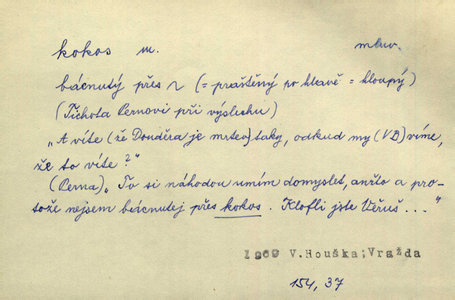 kokos m. mluv.
bácnutý přes ~ (= praštěný po hlavě = hloupý)
(Tichota Černovi při výslechu)
„A víte (že Donděra je mrtev) taky, odkud my (VB) víme,
že to víte?“
(Černa) „To si náhodou umím domyslet, anžto a pro-
tože nejsem bácnutej přes kokos. Klofli jste Věruš ...“
V. Houška; Vražda
154, 37